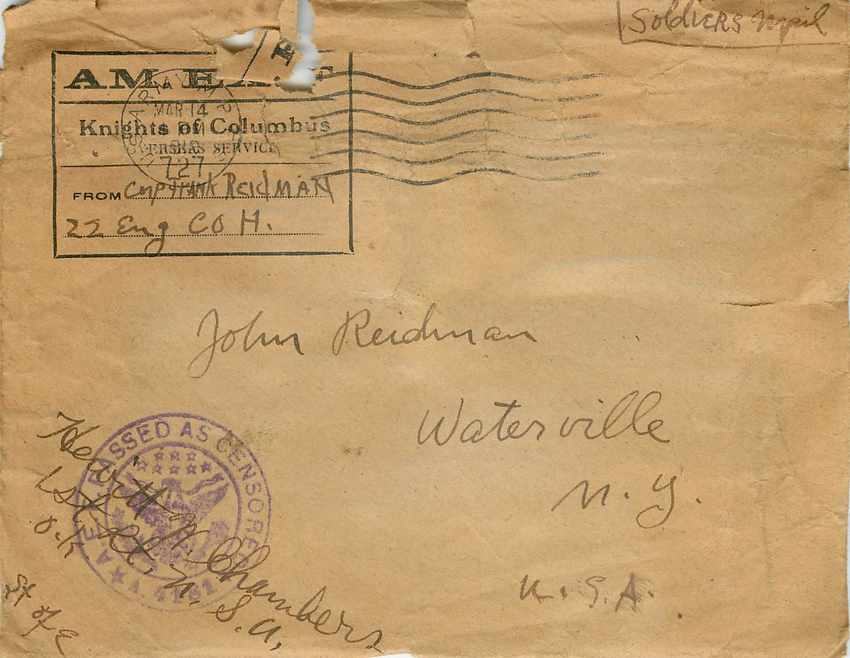 Soldiers Mail
AM E.
MAR 14
Knights of Columbus
OVERSEAS SERVICE
727
FROM Corp Frank Reidman
22 Eng CO H.
John Reidman
Waterville
N.Y.
U.S.A.
A.E.F. PASSED AS CENSORED
Hewitt W. Chambers
1st Lt. U.S.A.
O.K.